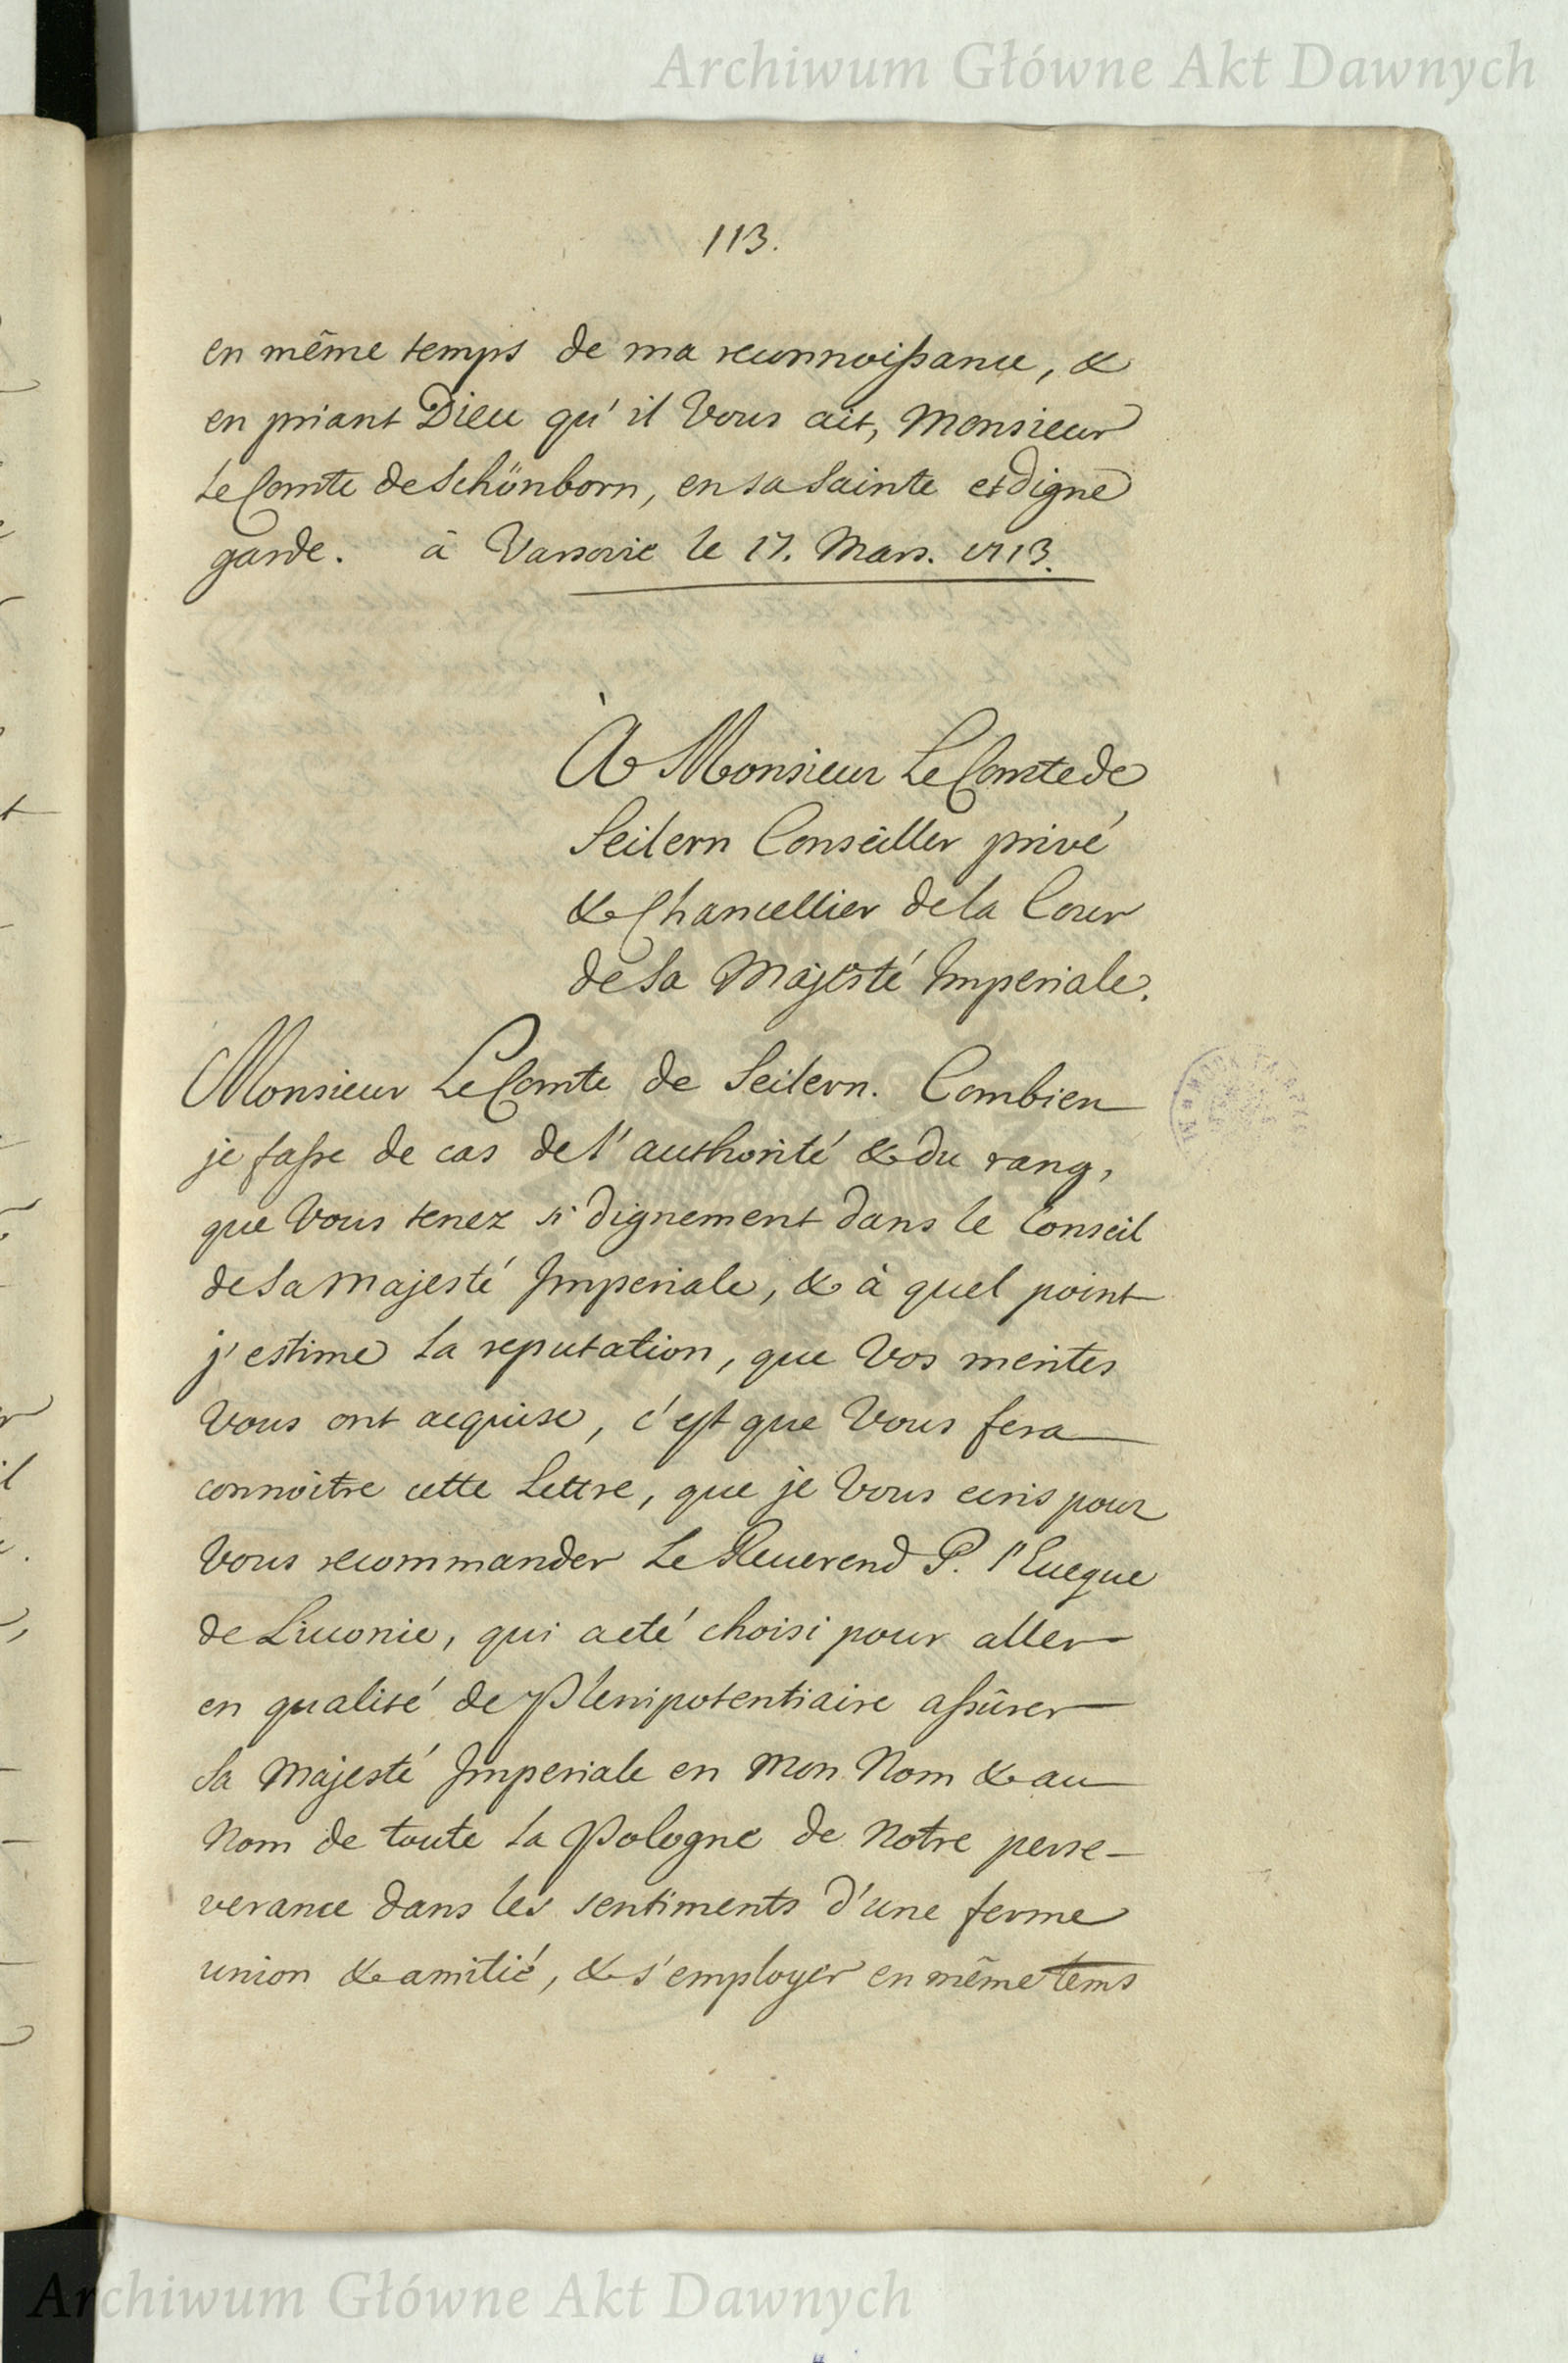 Archiwum Główne Akt Dawnych
113.
en même temps de ma reconnoissance, &
en priant Dieu qu'il Vous ait, Monsieur
Le Comte de Schönborn, en sa Sainte et digne
garde. à Varsovie le 17. Mars. 1713.
À Monsieur Le Comte de
Seilern Conseiller privé
& Chancellier de la Cour
de Sa Majesté Imperiale.
Monsieur Le Comte de Seilern. Combien
je fasse de cas de l'authorité & du rang,
que Vous tenez si dignement dans le Conseil
de Sa Majesté Imperiale, & à quel point
j'estime la reputation, que Vos merites
Vous ont acquise, c'est que Vous fera
connoitre cette Lettre, que je Vous ecris pour
Vous recommander Le Reuerend P. l'Eueque
de Liuonie, qui a eté choisi pour aller
en qualité de Plenipotentiaire assûrer
Sa Majesté Imperiale en Mon Nom & au
Nom de toute la Pologne de Notre perse-
verance dans les sentiments d'une ferme
union & amitié, & s'employer en même tems
Archiwum Główne Akt Dawnych